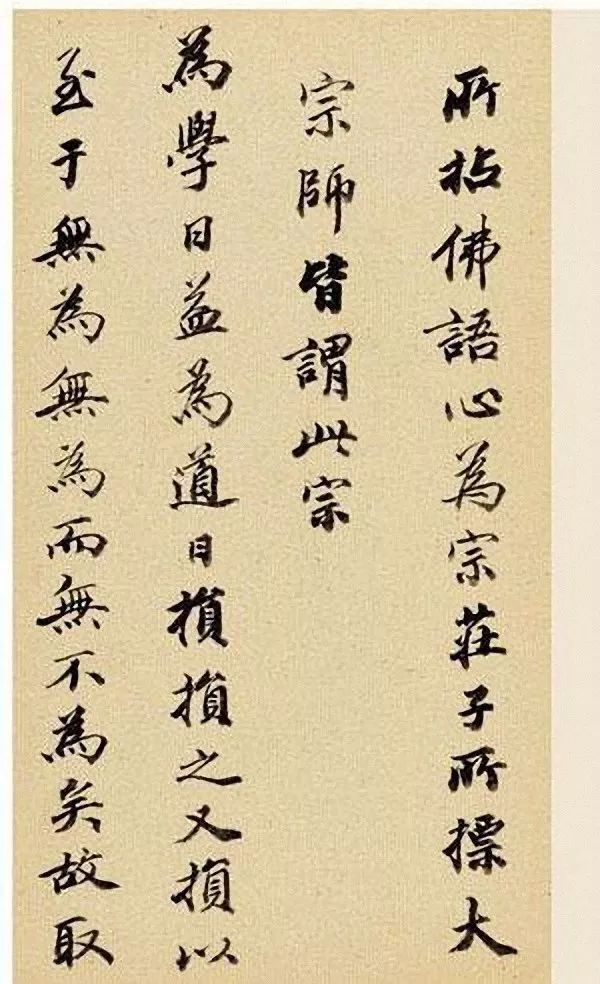 所拈佛語心為宗莊子所摽大
宗師皆謂此宗
為學日益為道日損損之又損以
至于無為無為而無不為矣故取